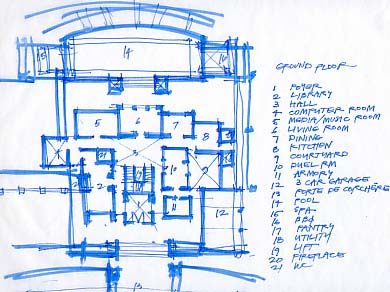 GROUND FLOOR
1 FOYER
2 LIBRARY
3 HALL
4 COMPUTER ROOM
5 MEDIA/MUSIC ROOM
6 LIVING ROOM
7 DINING
8 KITCHEN
9 COURTYARD
10 DUEL RM
11 ARMORY
12 3 CAR GARAGE
13 PORTE DE CORCHERE
14 POOL
15 SPA
16 BBQ
17 PANTRY
18 UTILITY
19 LIFT
20 FIREPLACE
21 WC
14
15
16
5
6
7
8
4
3
2
10
11
12
13